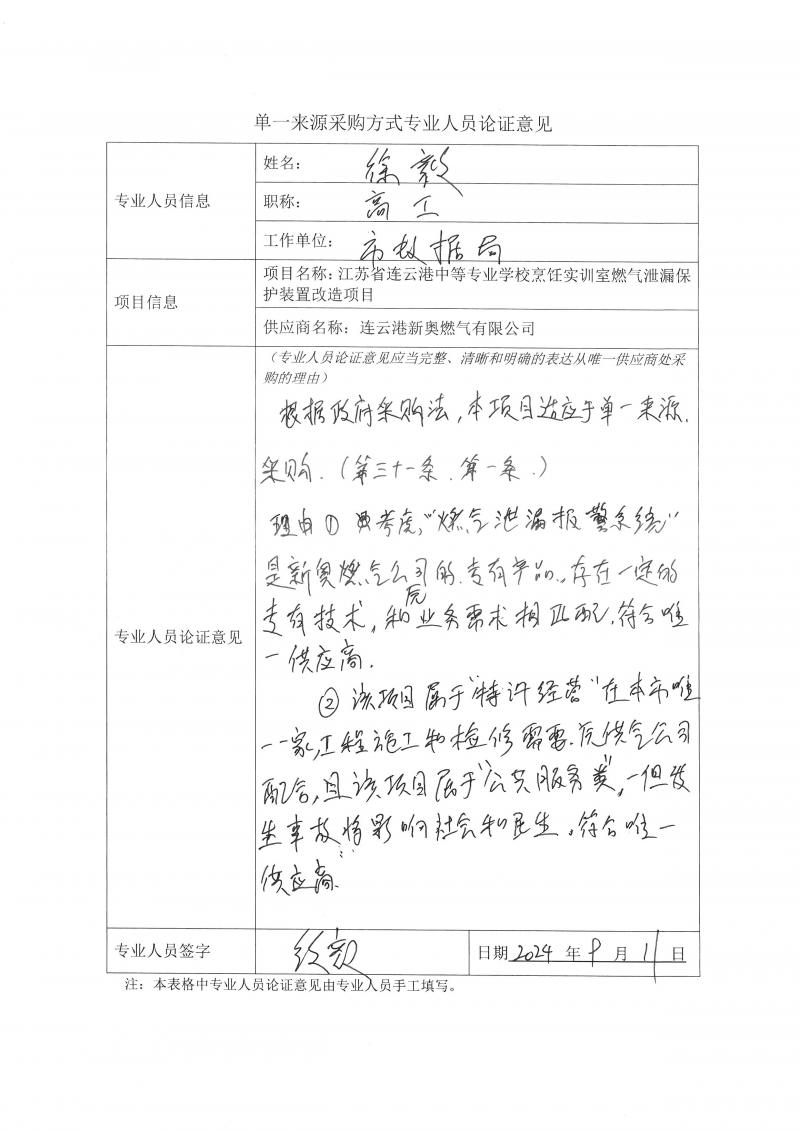 单一来源采购方式专业人员论证意见
专业人员信息
姓名：徐毅
职称：高工
工作单位：市数据局
项目信息
项目名称：江苏省连云港中等专业学校烹饪实训室燃气泄漏保
护装置改造项目
供应商名称：连云港新奥燃气有限公司
专业人员论证意见
（专业人员论证意见应当完整、清晰和明确的表达从唯一供应商处采
购的理由）
根据政府采购法，本项目适应于单一来源
采购．（第三十一条．第一条．）
理由① 考虑，“燃气泄漏报警系统”
是新奥燃气公司的．专有产品．，存在一定的
专有技术，和原业务需求相匹配．符合唯
一供应商．
② 该项目属于“特许经营”在本市唯
一一家，工程施工和检修需要．供气公司
配合，且该项目属于“公共服务类”，一但发
生事故将影响社会和民生．符合唯一
供应商．
专业人员签字 徐毅
日期 2024 年 9 月 11 日
注：本表格中专业人员论证意见由专业人员手工填写。